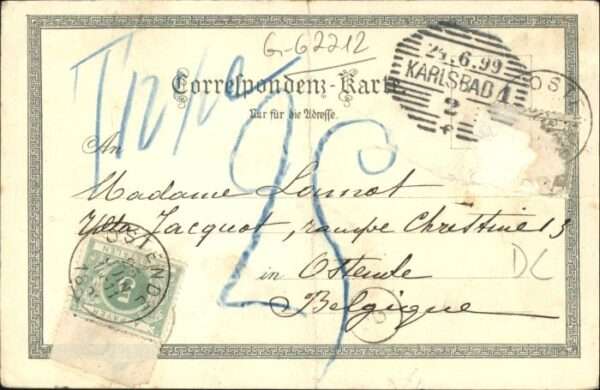 G-62212
24.6.99
KARLSBAD 1
2
OSTE
Correspondenz-Karte
Nur für die Adresse.
An
Madame Lamot
Villa Jacquot, rampe Christine 13
in Ostende
Belgique
25
DC
OSTENDE
5